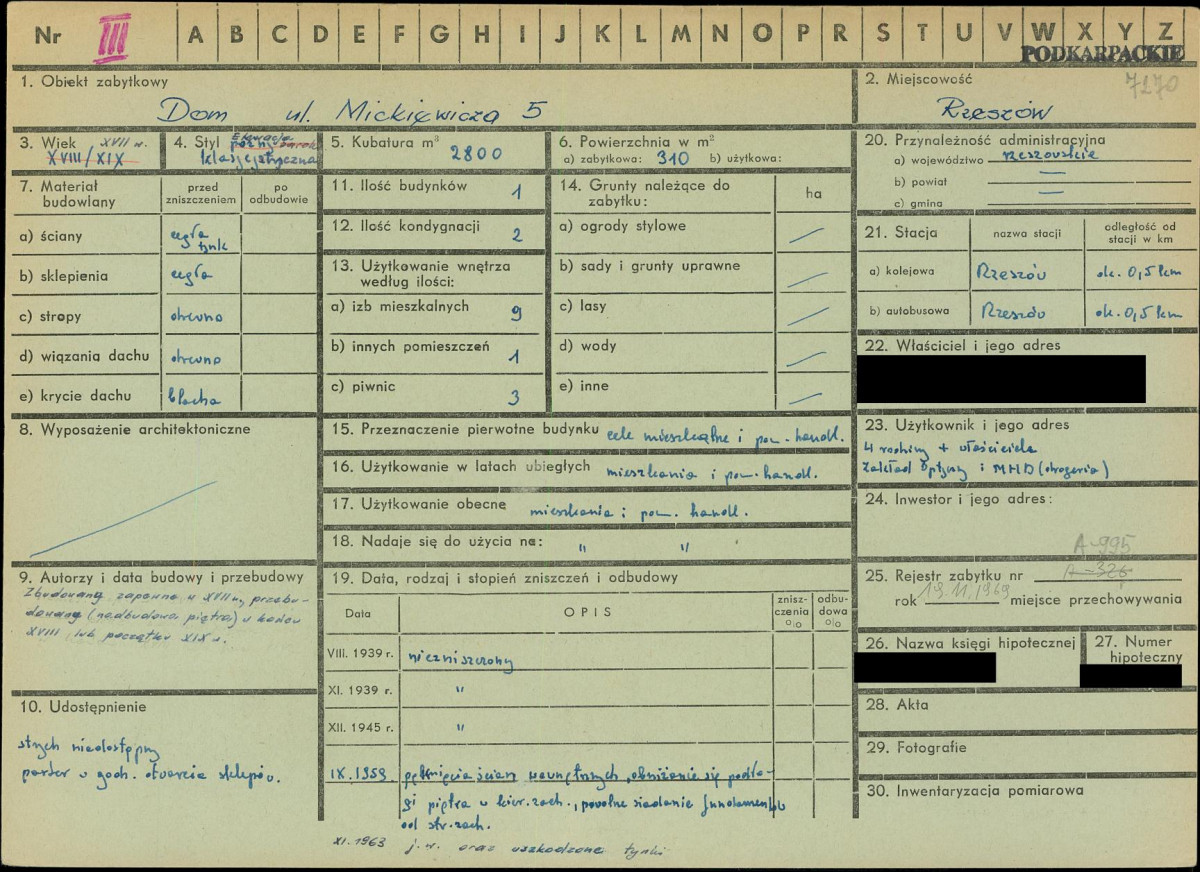 Nr III A B C D E F G H I J K L M N O P R S T U V W X Y Z
PODKARPACKIE
1. Obiekt zabytkowy
Dom ul. Mickiewicza 5
2. Miejscowość
7170
Rzeszów
3. Wiek XVII w.
XVIII/XIX
4. Styl Elewacja
późny barok
klasycystyczna
5. Kubatura m³
2800
6. Powierzchnia w m²
a) zabytkowa: 310 b) użytkowa:
20. Przynależność administracyjna
a) województwo rzeszowskie
b) powiat —
c) gmina —
7. Materiał budowlany
przed zniszczeniem
po odbudowie
a) ściany cegła tynk
b) sklepienia cegła
c) stropy drewno
d) wiązania dachu drewno
e) krycie dachu blacha
11. Ilość budynków 1
12. Ilość kondygnacji 2
13. Użytkowanie wnętrza
według ilości:
a) izb mieszkalnych 9
b) innych pomieszczeń 1
c) piwnic 3
14. Grunty należące do
zabytku:
ha
a) ogrody stylowe
b) sady i grunty uprawne
c) lasy
d) wody
e) inne
21. Stacja
nazwa stacji
odległość od
stacji w km
a) kolejowa Rzeszów ok. 0,5 km
b) autobusowa Rzeszów ok. 0,5 km
22. Właściciel i jego adres
8. Wyposażenie architektoniczne
15. Przeznaczenie pierwotne budynku cele mieszkalne i pom. handl.
16. Użytkowanie w latach ubiegłych mieszkania i pom. handl.
17. Użytkowanie obecne mieszkania i pom. handl.
18. Nadaje się do użycia na: " "
23. Użytkownik i jego adres
4 rodziny + właściciele
zakład optyczny i MHD (drogeria)
24. Inwestor i jego adres:
A-995
25. Rejestr zabytku nr A-326
rok 19.11.1969 miejsce przechowywania
9. Autorzy i data budowy i przebudowy
Zbudowany zapewne w XVII w, przebu-
dowany (nadbudowa piętra) w końcu
XVIII lub początku XIX w.
19. Data, rodzaj i stopień zniszczeń i odbudowy
Data
OPIS
znisz-
czenia
%
odbu-
dowa
%
VIII. 1939 r. niezniszczony
XI. 1939 r. "
XII. 1945 r. "
IX. 1959. pęknięcia ścian wewnętrznych, obniżanie się podło-
gi piętra w kier. zach., powolne siadanie fundamentów
od str. zach.
XI. 1963 j.w. oraz uszkodzone tynki
26. Nazwa księgi hipotecznej
27. Numer
hipoteczny
10. Udostępnienie
strych niedostępny
parter w godz. otwarcia sklepów.
28. Akta
29. Fotografie
30. Inwentaryzacja pomiarowa